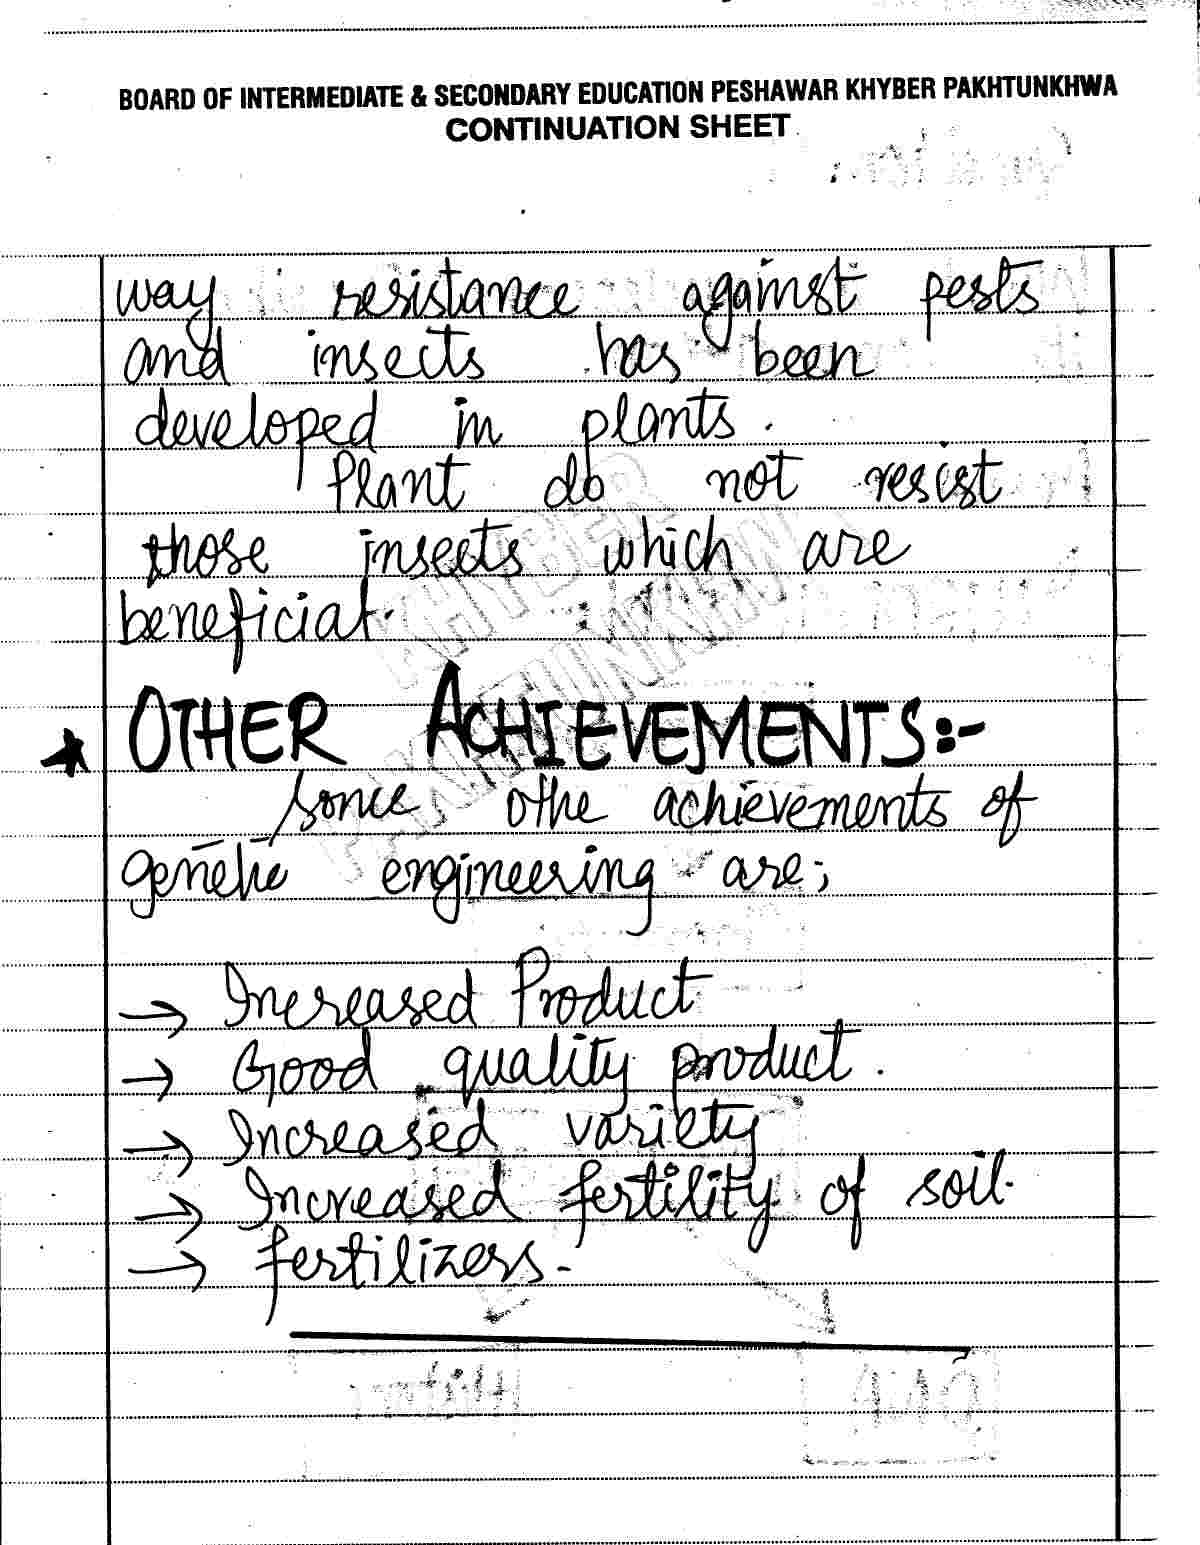 BOARD OF INTERMEDIATE & SECONDARY EDUCATION PESHAWAR KHYBER PAKHTUNKHWA
CONTINUATION SHEET
way resistance against pests
and insects has been
developed in plants.
Plant do not resist
those insects which are
beneficial.
KHYBER
PAKHTUNKHWA
* OTHER ACHIEVEMENTS:-
Some othe achievements of
genetic engineering are;
→ Increased Product
→ Good quality product.
→ Increased variety
→ Increased fertility of soil.
→ fertilizers.